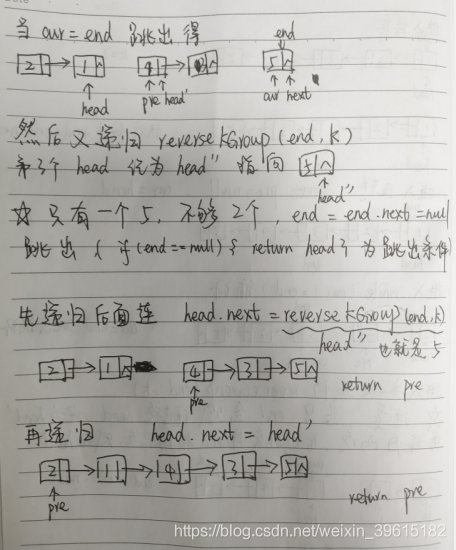 当 cur = end 跳出得
end
2 → 1 ∧ 4 → 3 ∧ 5 ∧
head pre head' cur next
然后又递归 reverseKGroup(end, k)
第3个 head 记为 head'' 指向 5 ∧
head''
☆ 只有一个5, 不够2个, end = end.next = null
跳出 { if (end == null) { return head } 为跳出条件}
先递归后面连 head.next = reverseKGroup(end, k)
head'' 也就是5
2 → 1 ∧ 4 → 3 → 5 ∧
pre return pre
再递归 head.next = head'
2 → 1 → 4 → 3 → 5 ∧
pre return pre
https://blog.csdn.net/weixin_39615182